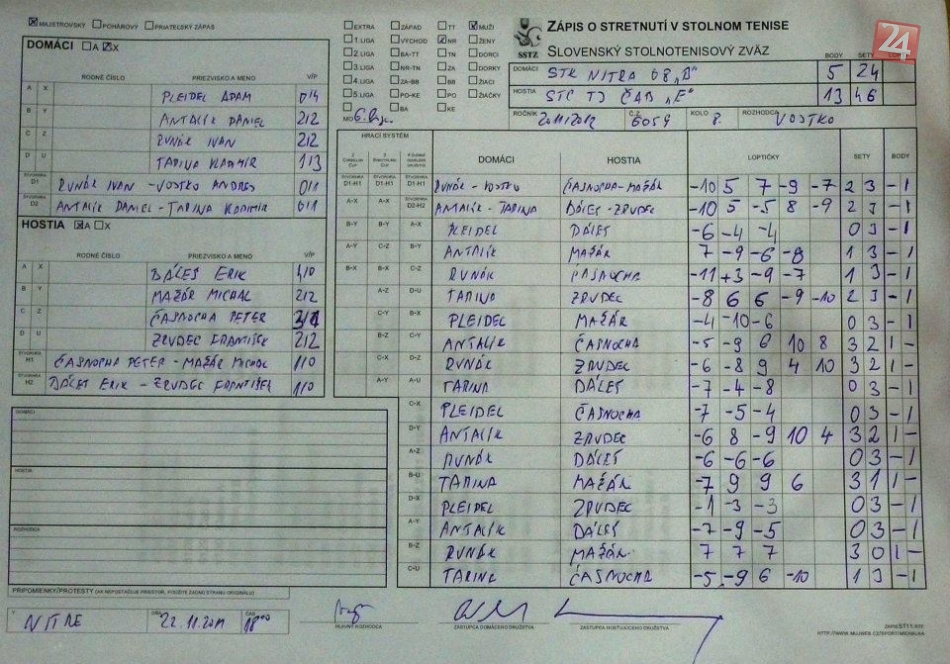 MAJSTROVSKÝ POHÁROVÝ PRIATEĽSKÝ ZÁPAS
DOMÁCI A X
RODNÉ ČÍSLO PRIEZVISKO A MENO V/P
A X PLEIDEL ADAM 0/4
B Y ANTALÍK DANIEL 2/2
C Z RUNÁK IVAN 2/2
D U TARINA VLADIMÍR 1/3
ŠTVORHRA D1 RUNÁK IVAN - VOSTKO ANDREJ 0/1
ŠTVORHRA D2 ANTALÍK DANIEL - TARINA VLADIMÍR 0/1
HOSTIA A X
RODNÉ ČÍSLO PRIEZVISKO A MENO V/P
A X DÁLEŠ ERIK 4/0
B Y MAŽÁR MICHAL 2/2
C Z ČASNOCHA PETER
D U ZRUDEC FRANTIŠEK 2/2
ŠTVORHRA H1 ČASNOCHA PETER - MAŽÁR MICHAL 1/0
ŠTVORHRA H2 DÁLEŠ ERIK - ZRUDEC FRANTIŠEK 1/0
DOMÁCI
HOSTIA
ROZHODCA
PRIPOMIENKY/PROTESTY (AK NEPOSTAČUJE PRIESTOR, POUŽITE ZADNÚ STRANU ORIGINÁLU)
V NITRE 22.11.2011 18:00
EXTRA ZÁPAD TT MUŽI
1.LIGA VÝCHOD NR ŽENY
2.LIGA BA-TT TN DORCI
3.LIGA NR-TN ZA DORKY
4.LIGA ZA-BB BB ŽIACI
5.LIGA PO-KE PO ŽIAČKY
MO BA KE
SSTZ
ZÁPIS O STRETNUTÍ V STOLNOM TENISE
SLOVENSKÝ STOLNOTENISOVÝ ZVÄZ
24
BODY SETY
DOMÁCI STK NITRA 08 „B" 5 24
HOSTIA STC TJ ČAB „E" 13 46
ROČNÍK 2011/2012 Č.Z. 6059 KOLO 8. ROZHODCA VOSTKO
HRACÍ SYSTÉM DOMÁCI HOSTIA LOPTIČKY SETY BODY
D1-H1 D1-H1 D1-H1 RUNÁK - VOSTKO ČASNOCHA-MAŽÁR -10 5 7 -9 -7 2 3 - 1
A-X A-X D2-H2 ANTALÍK - TARINA DÁLEŠ - ZRUDEC -10 5 -5 8 -9 2 3 - 1
B-Y B-Y A-X PLEIDEL DÁLEŠ -6 -4 -4 0 3 - 1
A-Y C-Z B-Y ANTALÍK MAŽÁR 7 -9 -6 -8 1 3 - 1
B-X B-X C-Z RUNÁK ČASNOCHA -11 +3 -9 -7 1 3 - 1
A-Z D-U TARINA ZRUDEC -8 6 6 -9 -10 2 3 - 1
C-Y B-X PLEIDEL MAŽÁR -4 -10 -6 0 3 - 1
B-Z C-Y ANTALÍK ČASNOCHA -5 -9 6 10 8 3 2 1 -
C-X D-Z RUNÁK ZRUDEC -6 -8 9 4 10 3 2 1 -
A-Y A-U TARINA DÁLEŠ -7 -4 -8 0 3 - 1
C-X PLEIDEL ČASNOCHA -7 -5 -4 0 3 - 1
D-Y ANTALÍK ZRUDEC -6 8 -9 10 4 3 2 1 -
A-Z RUNÁK DÁLEŠ -6 -6 -6 0 3 - 1
B-U TARINA MAŽÁR -7 9 9 6 3 1 1 -
D-X PLEIDEL ZRUDEC -1 -3 -3 0 3 - 1
A-Y ANTALÍK DÁLEŠ -7 -9 -5 0 3 - 1
B-Z RUNÁK MAŽÁR 7 7 7 3 0 1 -
C-U TARINA ČASNOCHA -5 -9 6 -10 1 3 - 1
HLAVNÝ ROZHODCA ZÁSTUPCA DOMÁCEHO DRUŽSTVA ZÁSTUPCA HOSŤUJÚCEHO DRUŽSTVA